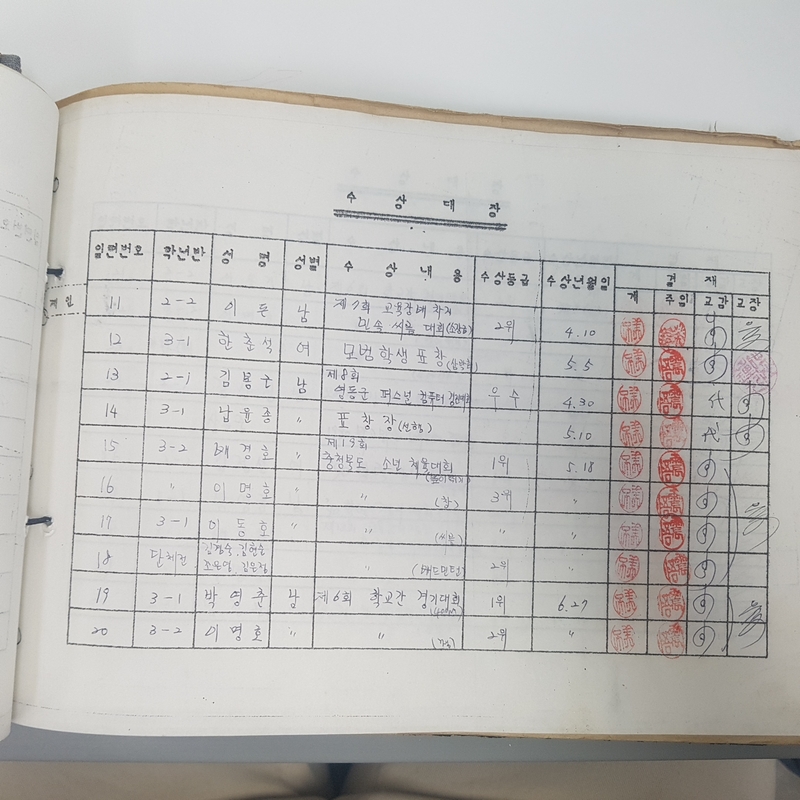 수 상 대 장
일련번호 학년반 성 명 성별 수 상 내 용 수상등급 수상년월일 결 재
계 주임 교감 교장
11 2-2 이 든 남 제7회 교육장배 학지
민속 씨름 대회 2위 4.10
12 3-1 한춘석 여 모범학생 표창 5.5
13 2-1 김봉근 남 제8회
영동군 퍼스널 컴퓨터 우수 4.30 代
14 3-1 남윤종 〃 표창장(선행) 5.10 代
15 3-2 배경호 〃 제19회
충청북도 소년 체육대회 1위 5.18
(높이뛰기)
16 〃 이명호 〃 (창) 3위 〃
17 3-1 이동호 〃 〃 (씨름) 〃 〃
18 단체전 김현순
김은정 〃 (배드민턴) 2위 〃
19 3-1 박영춘 남 제6회 학교간 경기대회 1위 6.27
(400M)
20 3-2 이명호 〃 〃 2위 〃